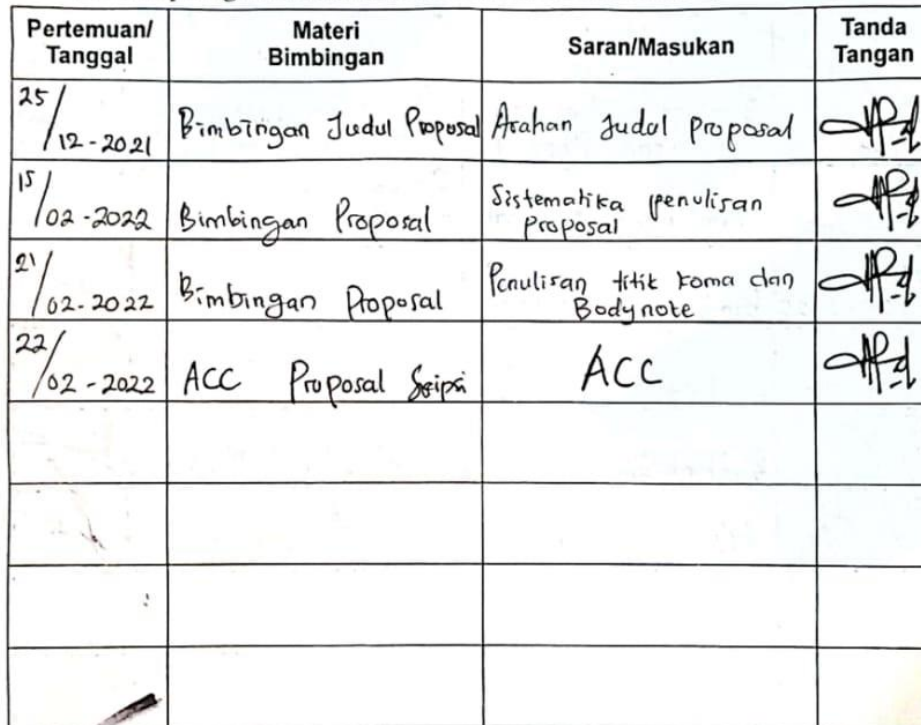 Pertemuan/ Tanggal
Materi Bimbingan
Saran/Masukan
Tanda Tangan
25/12-2021 Bimbingan Judul Proposal Arahan Judul Proposal
15/02-2022 Bimbingan Proposal Sistematika penulisan Proposal
21/02-2022 Bimbingan Proposal Penulisan titik koma dan Bodynote
22/02-2022 ACC Proposal Sripsi ACC